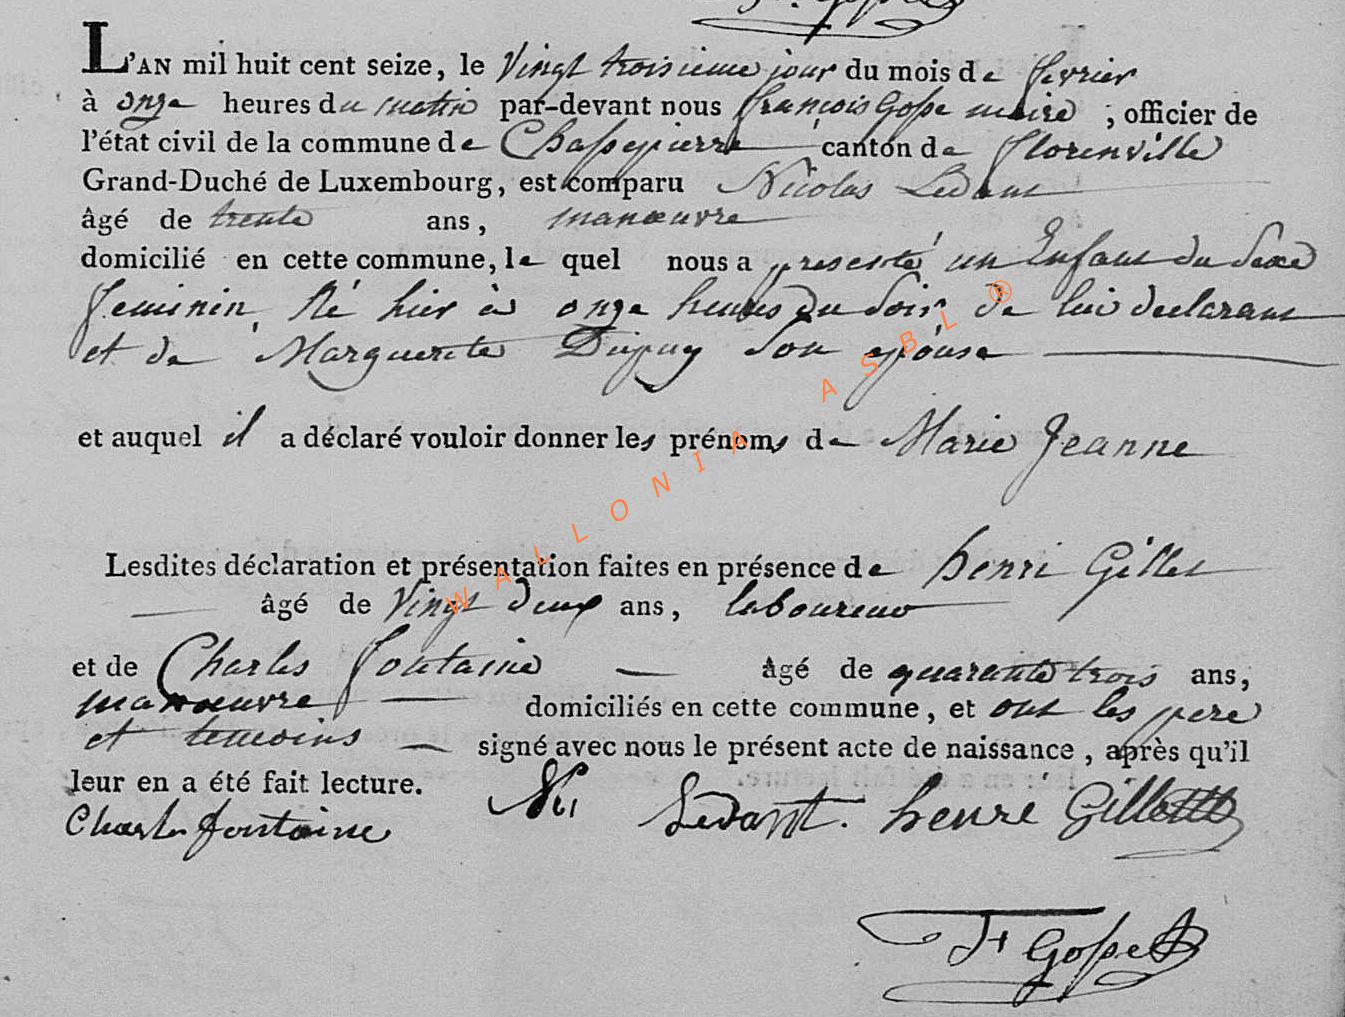 L'AN mil huit cent seize, le Vingt troisieme jour du mois de fevrier
à onze heures du matin par-devant nous françois Gosse maire ; officier de
l'état civil de la commune de Chassepierre canton de florenville
Grand-Duché de Luxembourg, est comparu Nicolas Ledant
âgé de trente ans, manœuvre
domicilié en cette commune, le quel nous a presenté un Enfant du Sexe
feminin, Né hier à onze heures du Soir de lui declarant
et de Marguerite Dupuy Son epouse
et auquel il a déclaré vouloir donner les prénoms de Marie Jeanne
Lesdites déclaration et présentation faites en présence de henri Gillet
âgé de Vingt deux ans, laboureur
et de Charles fontaine âgé de quarante trois ans,
manoeuvre domiciliés en cette commune, et ont les pere
et temoins signé avec nous le présent acte de naissance, après qu'il
leur en a été fait lecture.
Ni Ledant. henri
Charle fontaine
F Gosse
WALLONIA ASBL ®